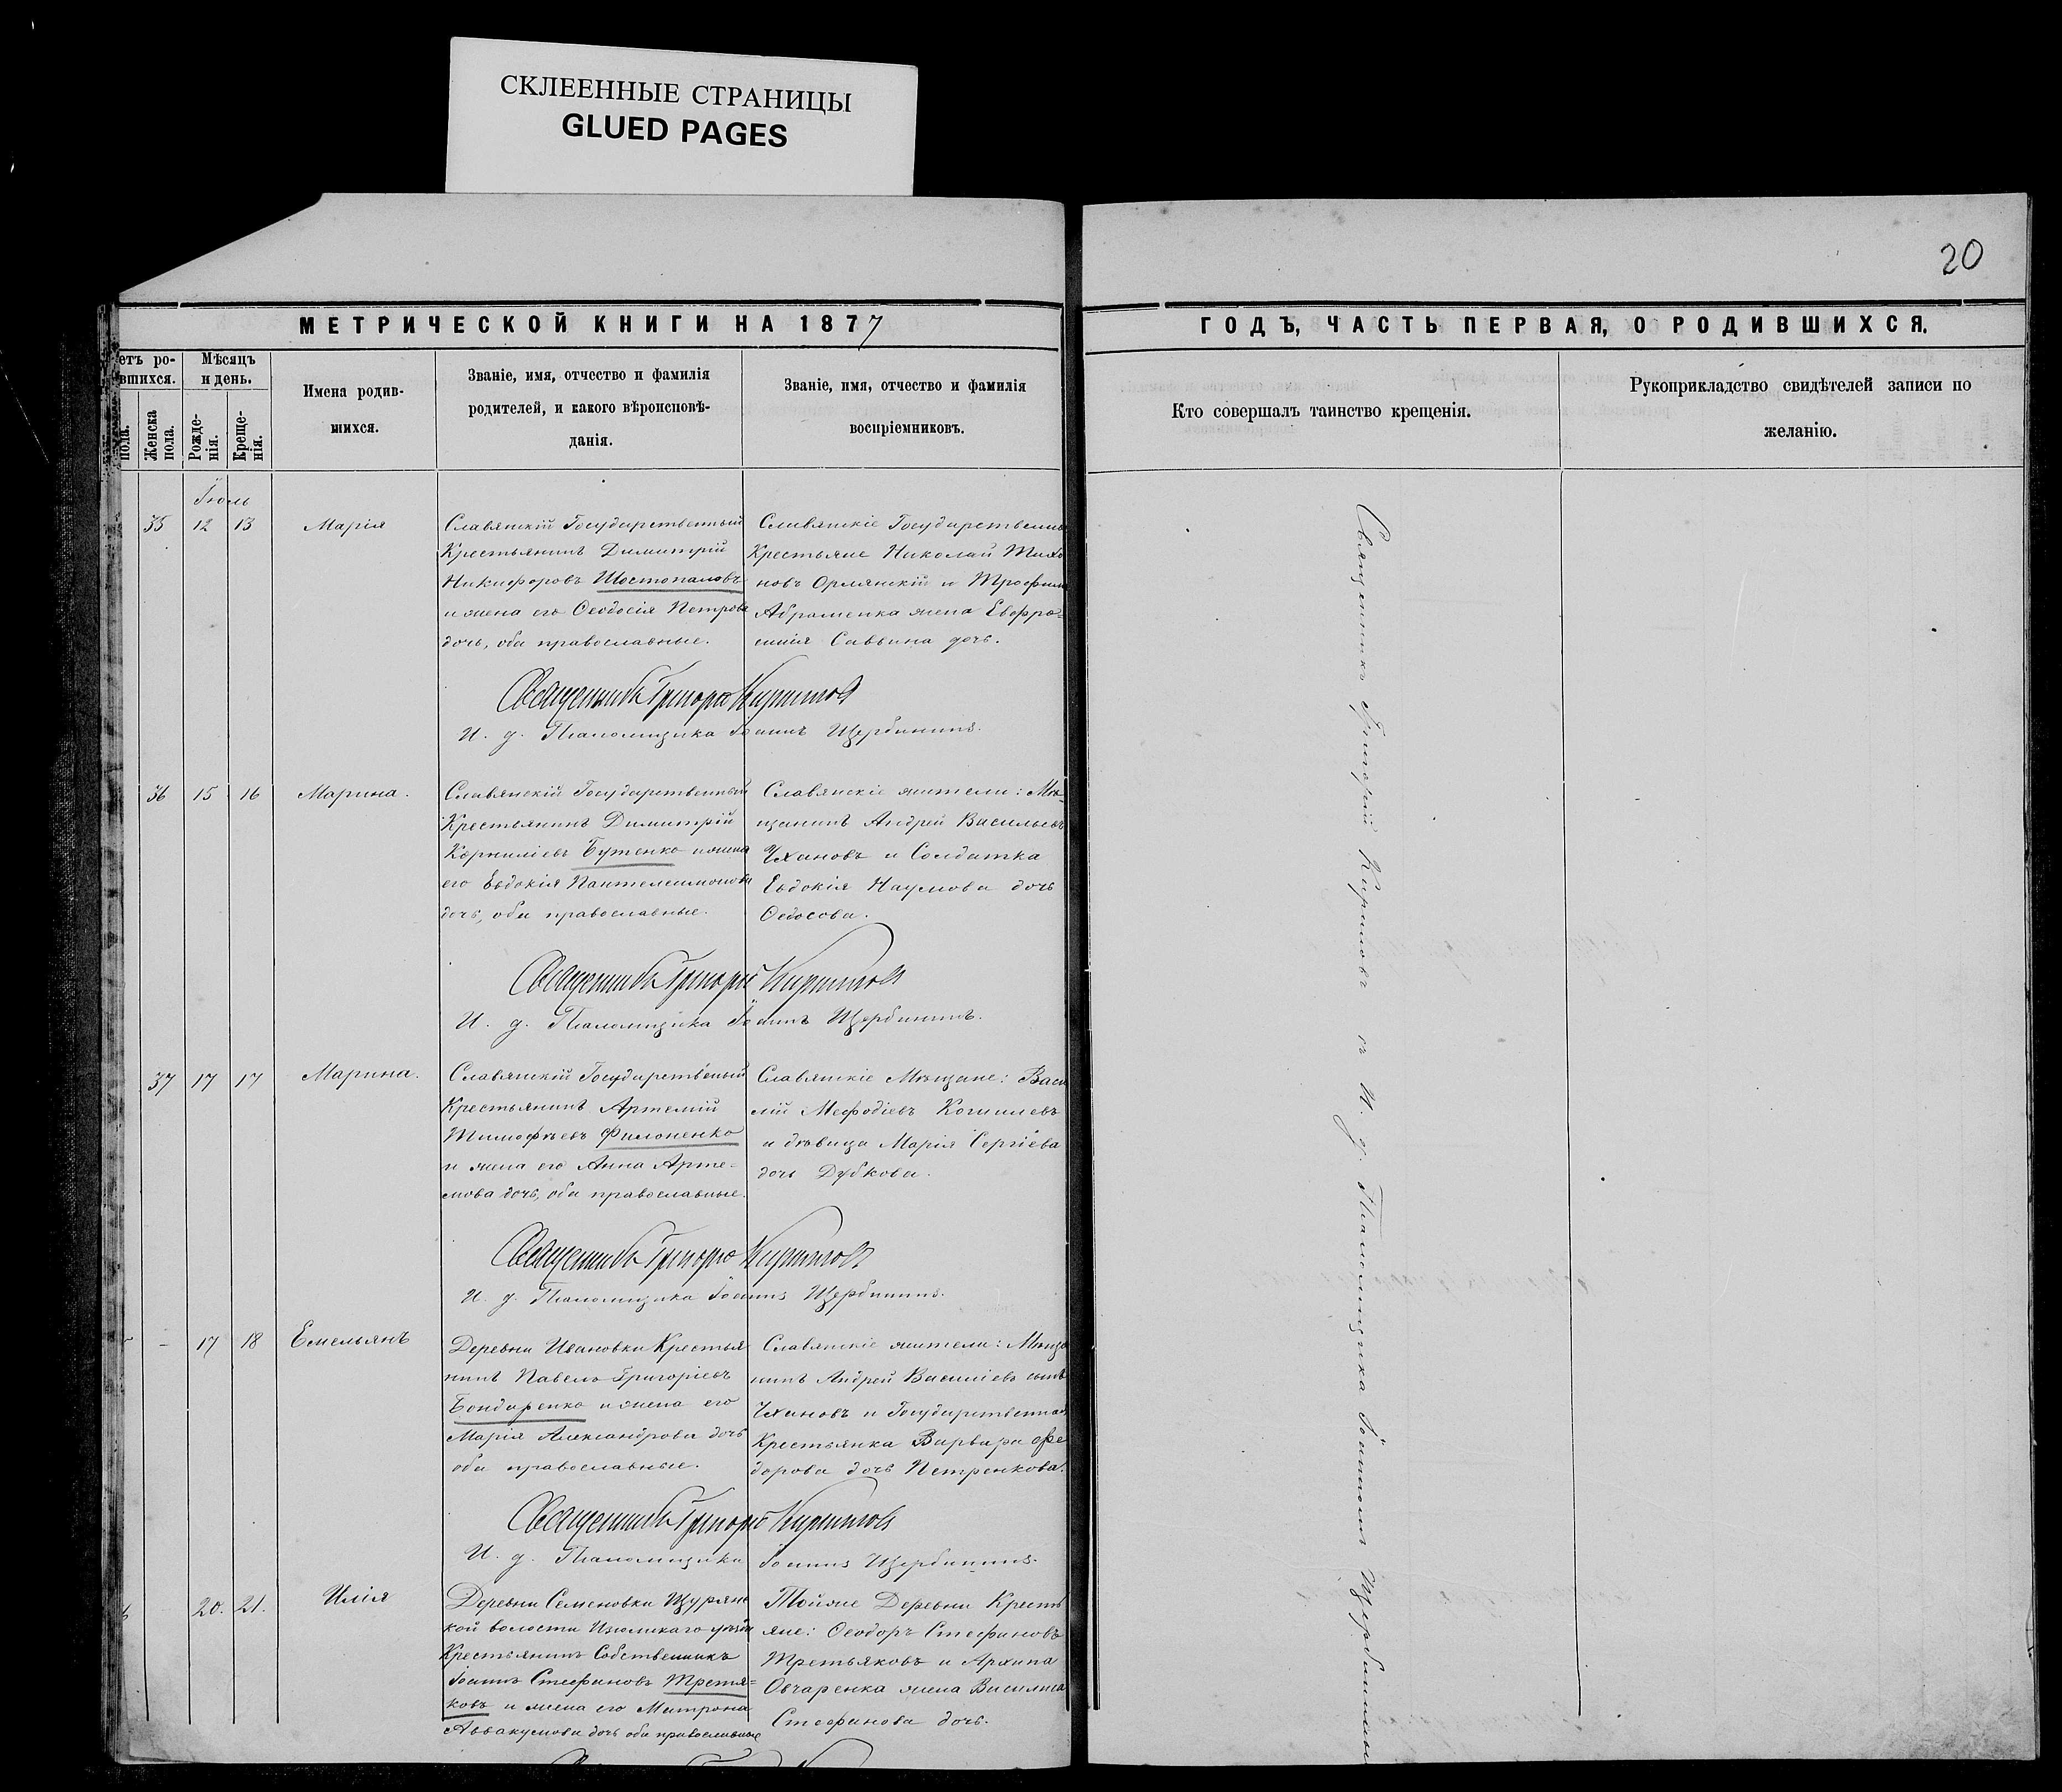 СКЛЕЕННЫЕ СТРАНИЦЫ
GLUED PAGES
20
МЕТРИЧЕСКОЙ КНИГИ НА 1877
ГОДЪ, ЧАСТЬ ПЕРВАЯ, О РОДИВШИХСЯ.
етъ ро-
вшихся.
Мѣсяцъ
и день.
пола.
Женска
пола.
Рожде-
нія.
Креще-
нія.
Имена родив-
шихся.
Званіе, имя, отчество и фамилія
родителей, и какого вѣроисповѣ-
данія.
Званіе, имя, отчество и фамилія
воспріемниковъ.
Кто совершалъ таинство крещенія.
Рукоприкладство свидѣтелей записи по
желанію.
Іюль
35 12 13 Марія
Славянскій Государственный
Крестьянинъ Димитрій
Никифоровъ Шостопаловъ
и жена его Ѳеодосія Петрова
дочь, оба православные.
Славянскіе Государственны
Крестьяне Николай Тихо
новъ Орлянскій и Трофим
Абраменка жена Евфро-
синія Саввина дочь.
Священникъ Григорій Кириловъ
И. д. Псаломщика Іоаннъ Щербининъ.
36 15 16 Марина.
Славянскій Государственный
Крестьянинъ Димитрій
Корниліевъ Бутенко и жена
его Евдокія Пантелеимонова
дочь, оба православные.
Славянскіе жители: Мѣ-
щанинъ Андрей Васильевъ
Чхановъ и Солдатка
Евдокія Наумова дочь
Ѳедосова.
Священникъ Григорій Кириловъ
И. д. Псаломщика Іоаннъ Щербининъ.
37 17 17 Марина.
Славянскій Государственый
Крестьянинъ Артемій
Тимофѣевъ Филоненко
и жена его Анна Арте-
мова дочь, оба православные.
Славянскіе Мѣщане: Васи
лій Мефодіевъ
и дѣвица Марія Сергіева
дочь Дубкова.
Священникъ Григорій Кириловъ
И. д. Псаломщика Іоаннъ Щербининъ.
- 17 18 Емельянъ
Деревни Ивановки Крестья
нинъ Павелъ Григоріевъ
Бондаренко и жена его
Марія Александрова дочь
оба православные.
Славянскіе жители: Мѣща
нинъ Андрей Василіевъ сынъ
Чхановъ и Государственная
Крестьянка Варвара Фе
дорова дочь Петренкова.
Священникъ Григорій Кириловъ
И. д. Псаломщика Іоаннъ Щербининъ.
20. 21. Илія
Деревни Семеновки Щурянс
кой волости Изюмскаго уѣзда
Крестьянинъ Собственникъ
Іоаннъ Стефановъ Третья-
ковъ и жена его Матрона
Аввакумова дочь оба православные
Тойже Деревни Кресть
яне: Ѳеодоръ Стефановъ
Третьяковъ и Архипа
Овчаренка жена Василиса
Стефанова дочь.
Священникъ Григорій Кириловъ съ И. д. Псаломщика Іоанномъ Щербининым